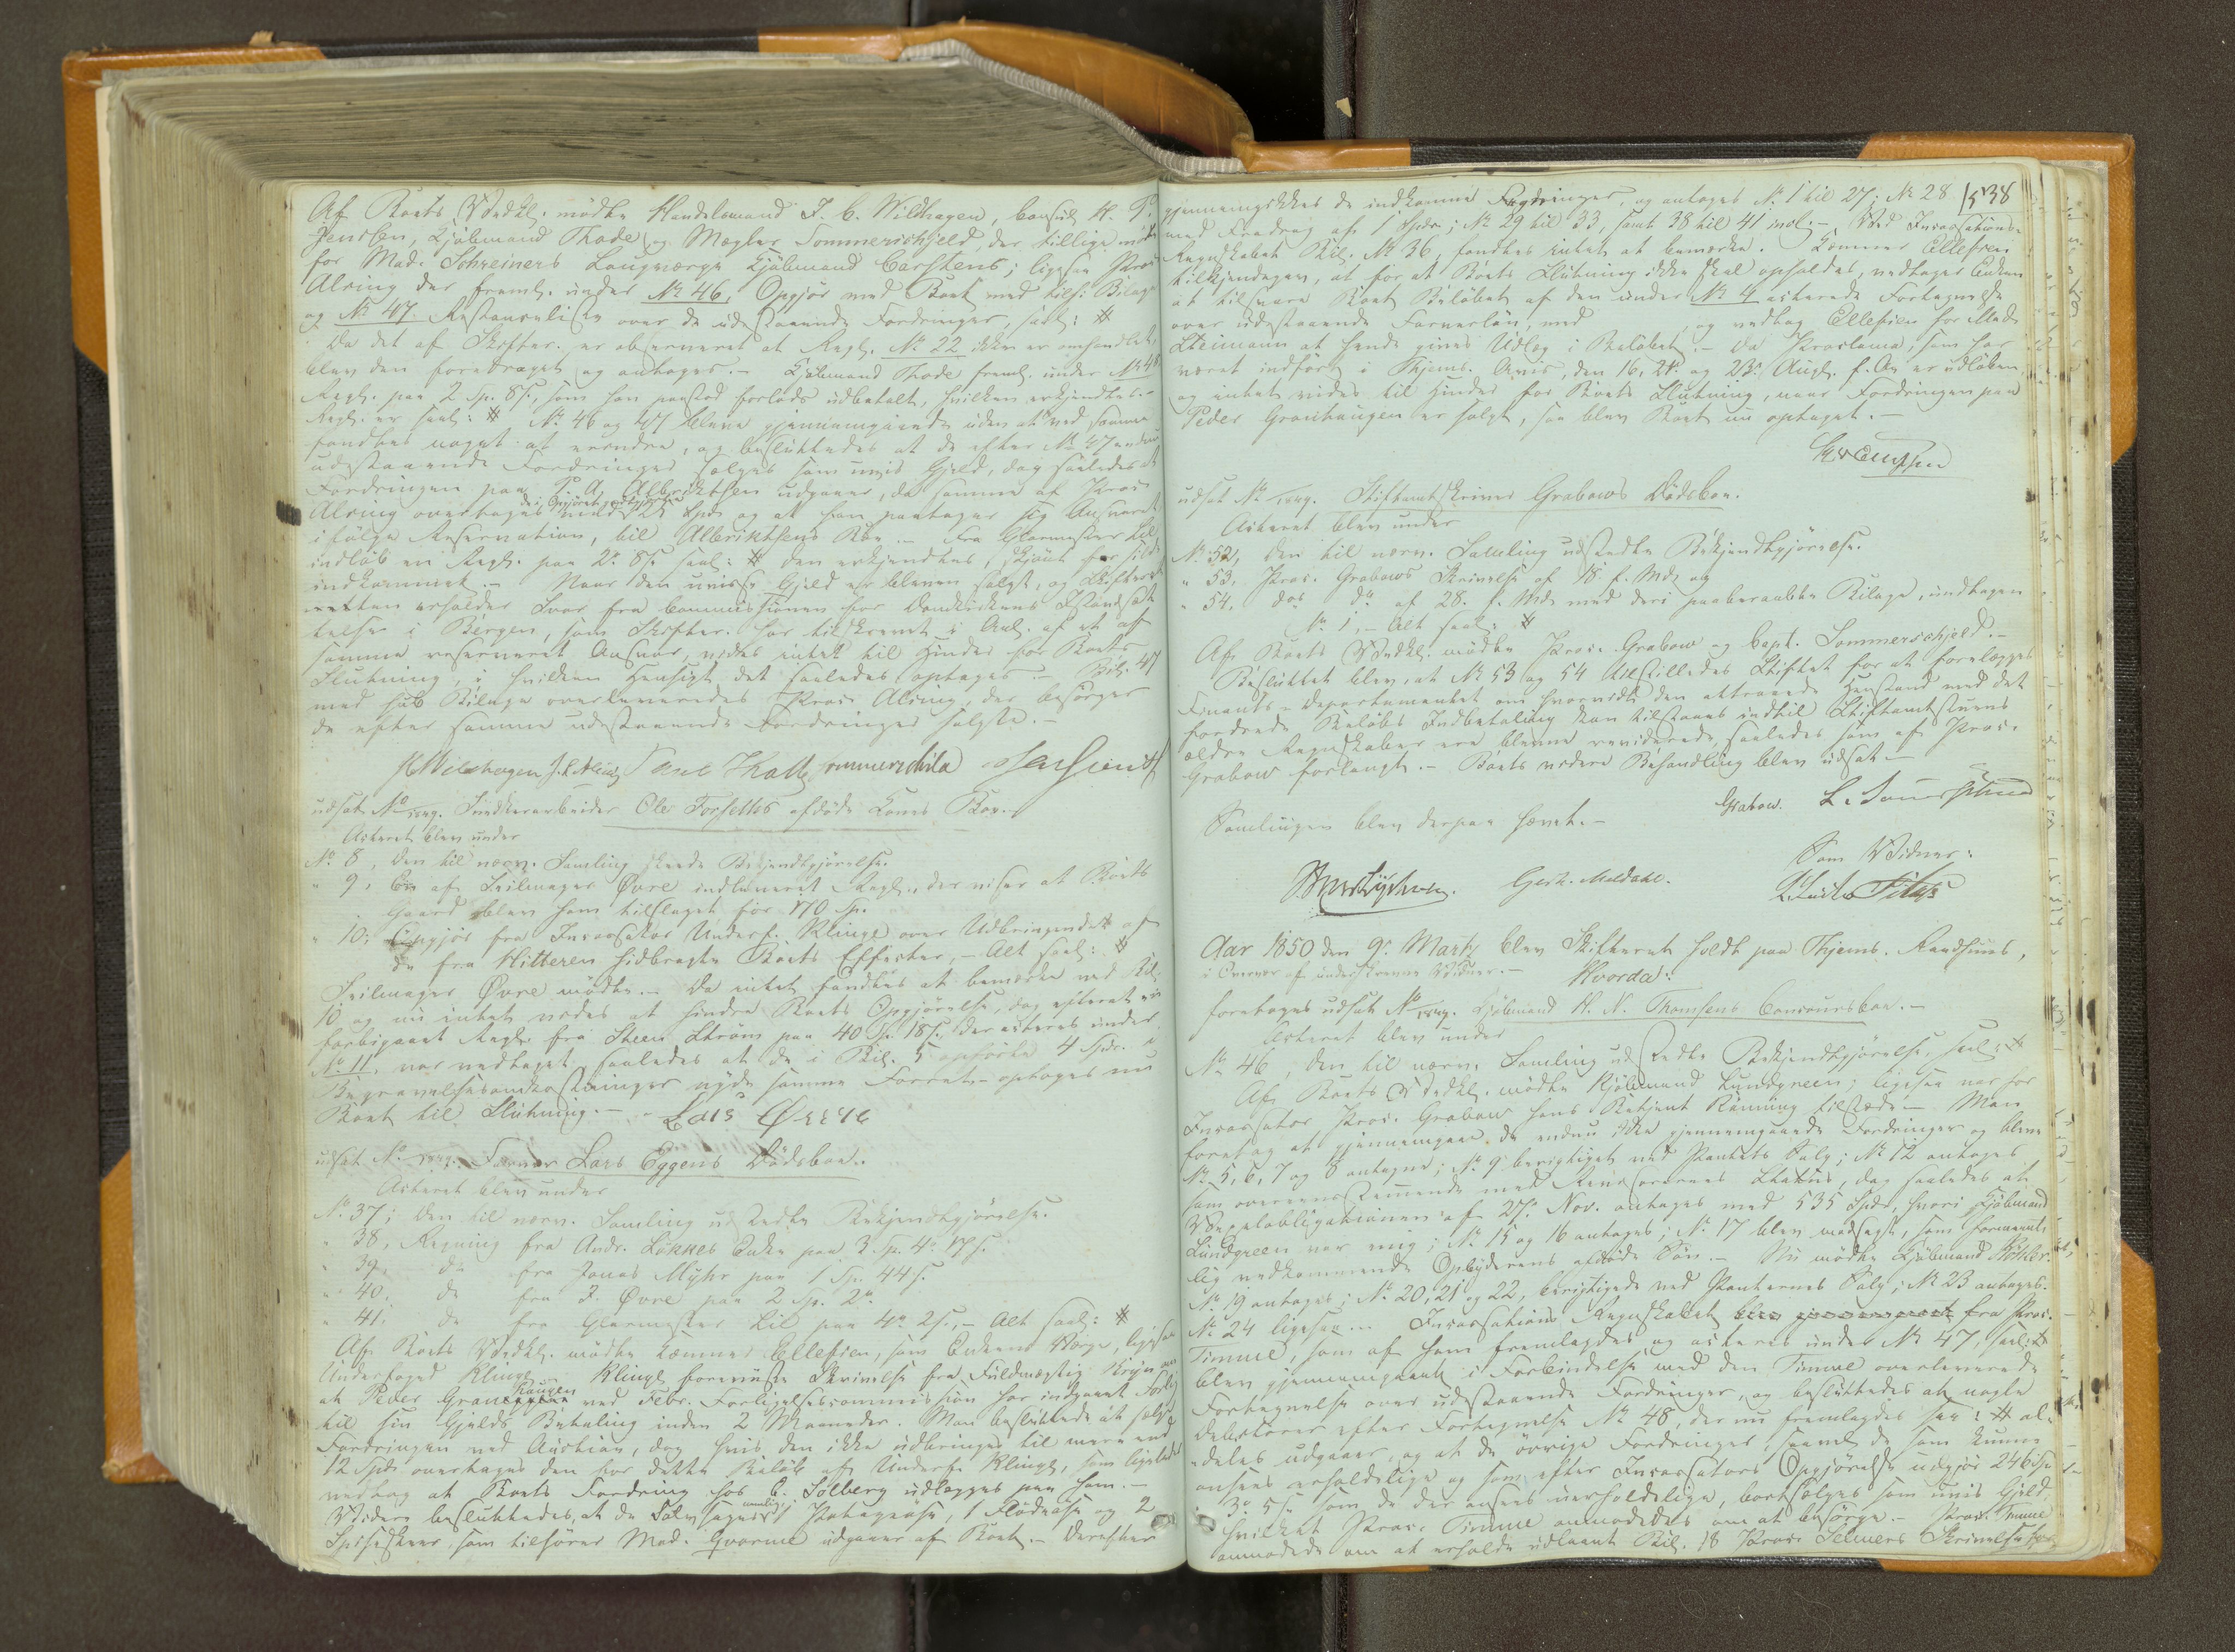 Af Boets Vedk. mødte Handelsmand J. C. Wildhagen, Consul H. P.
Jenssen, Kjøbmand Thode og Mægler Sommerschjeld, der tillige mødte
for Mad. Schreiners Laugværge Kjøbmand Carstens; ligesaa Proc.
Alsing der freml. under No 46, Opgjør med Boet med tilh: Bilage
og No 47. Restanceliste over de udestaaende Fordringer, saal: #
Da det af Skifter. er observeret at Regn. No 22 ikke er omhandlet,
blev den foredraget og antaget. - Kjøbmand Thode freml. under No 48
Regn. paa 2 Sp. 8 s., som han paastod forlods udbetalt, hvilken erkjendtes. -
Regn. er saal: # No 46 og 47 bleve gjennemgaaede uden at ved samme
fandtes noget at erindre, og besluttedes at de efter No 47 endnu
udestaaende Fordringer sælges som uvis Gjeld, dog saaledes at
Fordringen paa P. A. Albriktsen udgaaer, da samme af Proc.
Alsing overtages med 25 Spd. og at han paatager sig Ansvaret
ifølge Reservation, til Albriktsens Boe. - Fra Glarmester Lil
indløb en Regn. paa 2 8 s. saal: # den erkjendtes, skjønt for silde
indkommet. - Naar den uvisse Gjeld er bleven solgt, og Skifte-
retten erholder Svar fra Commissionen for Domkirkens Istandsæt-
telse i Bergen, som Skifter. har tilskrevet i Anl. af et af
samme reserveret Ansvar, vides intet til Hinder for Boets
Slutning, i hvilken Hensigt det saaledes optages. - Bil. 47
med sub Bilage overleveredes Proc. Alsing, der besørger
de efter samme udestaaende Fordringer solgte. -
Wildhagen J. L. Alsing Thode Sommerschild
udsat No 1849. Snedkerarbeider Ole Forsettes afdøde Kones Boe.
Acteret blev under
No 8, den til nærv. Samling skeede Bekjendtgjørelse.
" 9, En af Seilmager Øvre indleveret Regn., der viser at Boets
Gaard blev ham tilslaget for 170 Sp.
" 10, Opgjør fra Incassator Underf. Klinge over Udbringendet af
de fra Hitteren hidbragte Boets Effecter, - Alt saal: #
Seilmager Øvre mødte. - Da intet fandtes at bemærke ved Bil.
10 og nu intet vides at hindre Boets Opgjørelse, dog efterat en
forbigaaet Regn. fra Steen Strøm paa 40 Sp. 18 s., der acteres under
No 11, var vedtaget, saaledes at de i Bil. 5 opførte 4 Spd. i
Begravelsesomkostninger nyde samme Forret - optoges nu
Boet til Slutning. - Lars Øvre
udsat No 1849. Farver Lars Eggens Dødsboe.
Acteret blev under
No 37, den til nærv. Samling udstedte Bekjendtgjørelse.
" 38, Regning fra Andr. Løkkes Enke paa 3 Sp. 4 17 s.
" 39, do fra Jonas Myhr paa 1 Sp. 44 s.
" 40, do fra P. Øvre paa 2 Sp. 2
" 41, do fra Glarmester Lil paa 4 2 s., - Alt saal: #
Af Boets Vedk. mødte Kæmner Ellefsen, som Enkens Værge, ligesaa
Underfoged Klinge. - Klinge foreviste Skrivelse fra Fuldmægtig
at Peder Granhaugen ved Febr. Forligelsescommission har indgaaet Forlig
til sin Gjelds Betaling inden 2 Maaneder. Man besluttede at sælge
Fordringen ved Auction, dog hvis den ikke udbringes til mere end
12 Spd. overtages den for dette Beløb af Underf. Klinge, som ligeledes
vedtog at Boets Fordring hos C. Solberg udlægges paa ham. -
Videre besluttedes, at de Sølvsager nemlig: 1 Potageøse, 1 Flødeøse og 2
Spiseskeer, som tilhører Mad. Hvorme udgaaer af Boet. - Derefter
538
gjennemgikkes de indkomne Fordringer, og antoges No 1 til 27; No 28
med Fradrag af 1 Spd.; No 29 til 33, samt 38 til 41 incl. - Ved Incassations-
Regnskabet Bil. No 36, fandtes intet at bemærke. Kæmner Ellefsen
tilkjendegav, at for at Boets Slutning ikke skal opholdes, vedtager Enken
at tilsvare Boet Beløbet af den under No 4 acterede Fortegnelse
over udestaaende Farverløn, med , og vedtog Ellefsen for Mad.
Steimann at hende gives Udlæg i Beløbet. - Da Proclama, som har
været indført i Thjems. Avis, den 16, 21 og 23 Augs. f. A. er udløben,
og intet vides til Hinder for Boets Slutning, naar Fordringen paa
Peder Granhaugen er solgt, saa blev Boet nu optaget. -
udsat No 1849. Stiftamtskriver Grabows Dødsboe.
Acteret blev under
No 52, den til nærv. Samling udstedte Bekjendtgjørelse.
" 53, Proc. Grabows Skrivelse af 18 f. Md. og
" 54, dos do af 28 f. Md. med deri paaberaabte Bilage, undtagen
No 1. - Alt saal: #
Af Boets Vedk. mødte Proc. Grabow og Capt. Sommerschjeld. -
Besluttet blev, at No 53 og 54 tilstilledes Stiftet for at forelægges
Finants-Departementet om hvorvidt den attraaede Henstand med det
fordrede Beløbs Indbetaling kan tilstaaes indtil Stiftamtstuens
ældre Regnskaber ere blevne reviderede, saaledes som af Proc.
Grabow forlangt. - Boets videre Behandling blev udsat. -
Grabow. L. Sommerschield
Samlingen blev derpaa hævet. -
Som Vidner:
Gerh. Moldahl.
Aar 1850 den 9 Marts blev Skifteret holdt paa Thjems. Raadhuus,
i Overvær af underskrevne Vidner. - Hvorda:
foretoges udsat No 1849. Kjøbmand H. N. Thomsens Concursboe. -
Acteret blev under
No 46, den til nærv. Samling udstedte Bekjendtgjørelse, saal: #
Af Boets Vedk. mødte Kjøbmand Lundgreen; ligesaa var for
Incassator Proc. Grabow hans Betjent Rønning tilstede. - Man
foretog at gjennemgaae de endnu ikke gjennemgaaede Fordringer og bleve
No 5, 6, 7 og 8 antagne; No 9 berigtiget ved Pantets Salg; No 12 antages
som overeensstemmende med Revisorernes Status, dog saaledes at
Vexelobligationen af 27 Nov. antages med 535 Spd., hvori Kjøbmand
Lundgreen var enig; No 15 og 16 antages; No 17 blev modsagt, som formeent-
lig vedkommende Opbyderens afdøde Søn. - Nu mødte Kjøbmand Köhler.
No 19 antages; No 20, 21 og 22, berigtigede ved Panternes Salg; No 23 antages.
No 24 ligesaa. - Incassations Regnskabet fra Proc.
Timme, som af ham fremlagdes og acteres under No 47, saal: #
blev gjennemgaaet i Forbindelse med den Timme overleverede
Fortegnelse over udestaaende Fordringer, og besluttedes at nogle
Debitorer efter Fortegnelse No 48, der nu fremlagdes saa: # al-
deles udgaaer, og at de øvrige Fordringer, saavel de som kunne
ansees erholdelige og som efter Incassators Opgjørelse udgjør 246 Sp.
3 5 s. som de der ansees uerholdelige, bortsælges som uvis Gjeld
hvilket Proc. Timme anmodedes om at besørge. - Proc. Timme
anmodede om at erholde udlaant Bil. 18 Proc. Selmers Skrivelse for